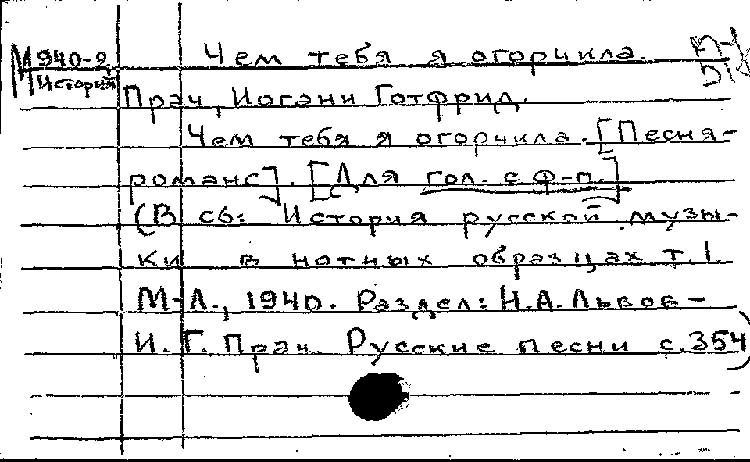 М 940-2
История
Чем тебя я огорчила.
Прач, Иоганн Готфрид.
Чем тебя я огорчила. [Песня-
романс]. [Для гол. с ф-п.]
(В сб: История русской музы-
ки в нотных образцах т. I.
М-Л., 1940. Раздел: Н.А. Львов -
И.Г. Прач. Русские песни с. 354)